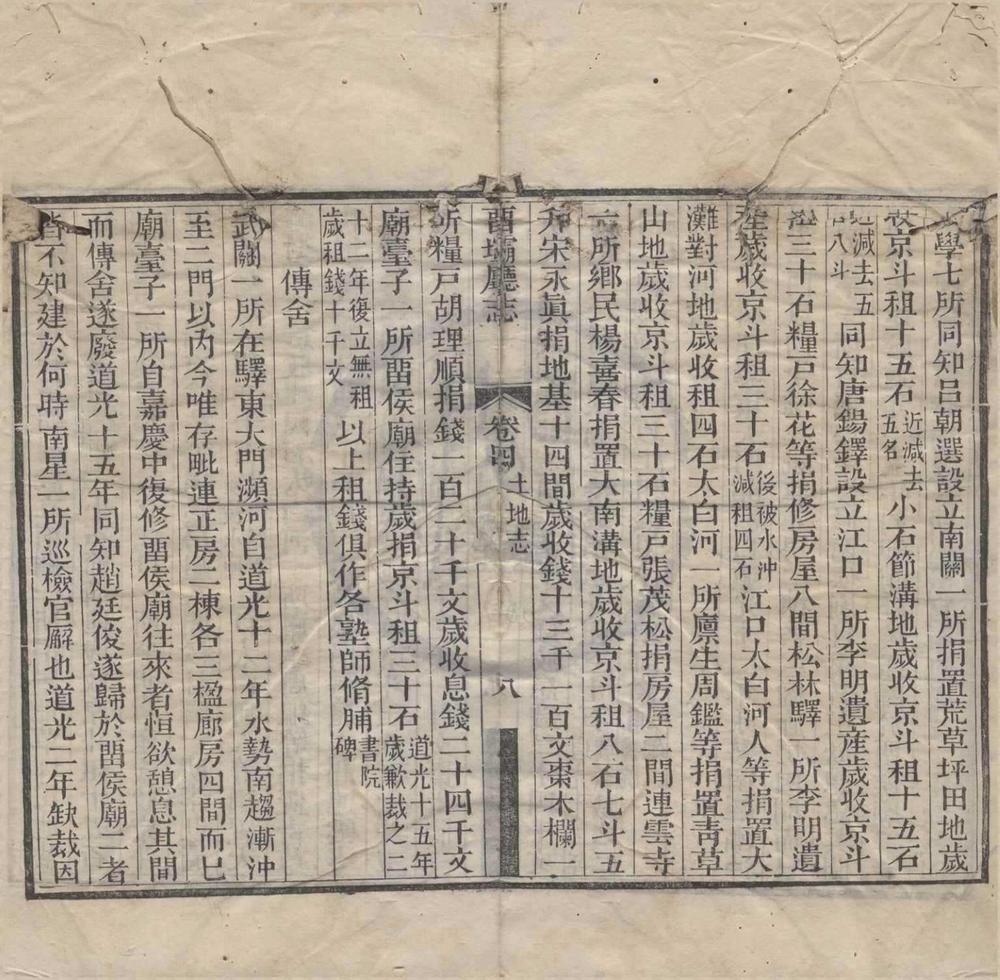 學七所同知呂朝選設立南關一所捐置荒草坪田地歲
京斗租十五石近減去五名小石節溝地歲收京斗租十五石
減去五八斗同知唐鍚鐸設立江口一所李明遺産歲收京斗
三十石糧戸徐花等捐修房屋八間松林驛一所李明遺
産歲收京斗租三十石後被水沖減租四石江口太白河人等捐置大
灘對河地歲收租四石太白河一所廩生周鑑等捐置靑草
山地歲收京斗租三十石糧戸張茂松捐房屋二間連雲寺
所鄉民楊喜春捐置大南溝地歲收京斗租八石七斗五
升宋永眞捐地基十四間歲收錢十三千一百文棗木欄一
畱壩廳志 卷四 土地志 八
所糧戸胡理順捐錢一百二十千文歲收息錢二十四千文
廟臺子一所畱侯廟住持歲捐京斗租三十石道光十五年歲歉裁之二
十二年復立無租歲租錢十千文以上租錢俱作各塾師脩脯書院碑
傳舍
武關一所在驛東大門瀕河自道光十二年水勢南趨漸沖
至二門以內今唯存毗連正房二棟各三楹廊房四間而已
廟臺子一所自嘉慶中復修畱侯廟往來者恒欲憩息其間
而傳舍遂廢道光十五年同知趙廷俊遂歸於畱侯廟二者
皆不知建於何時南星一所巡檢官廨也道光二年缺裁因